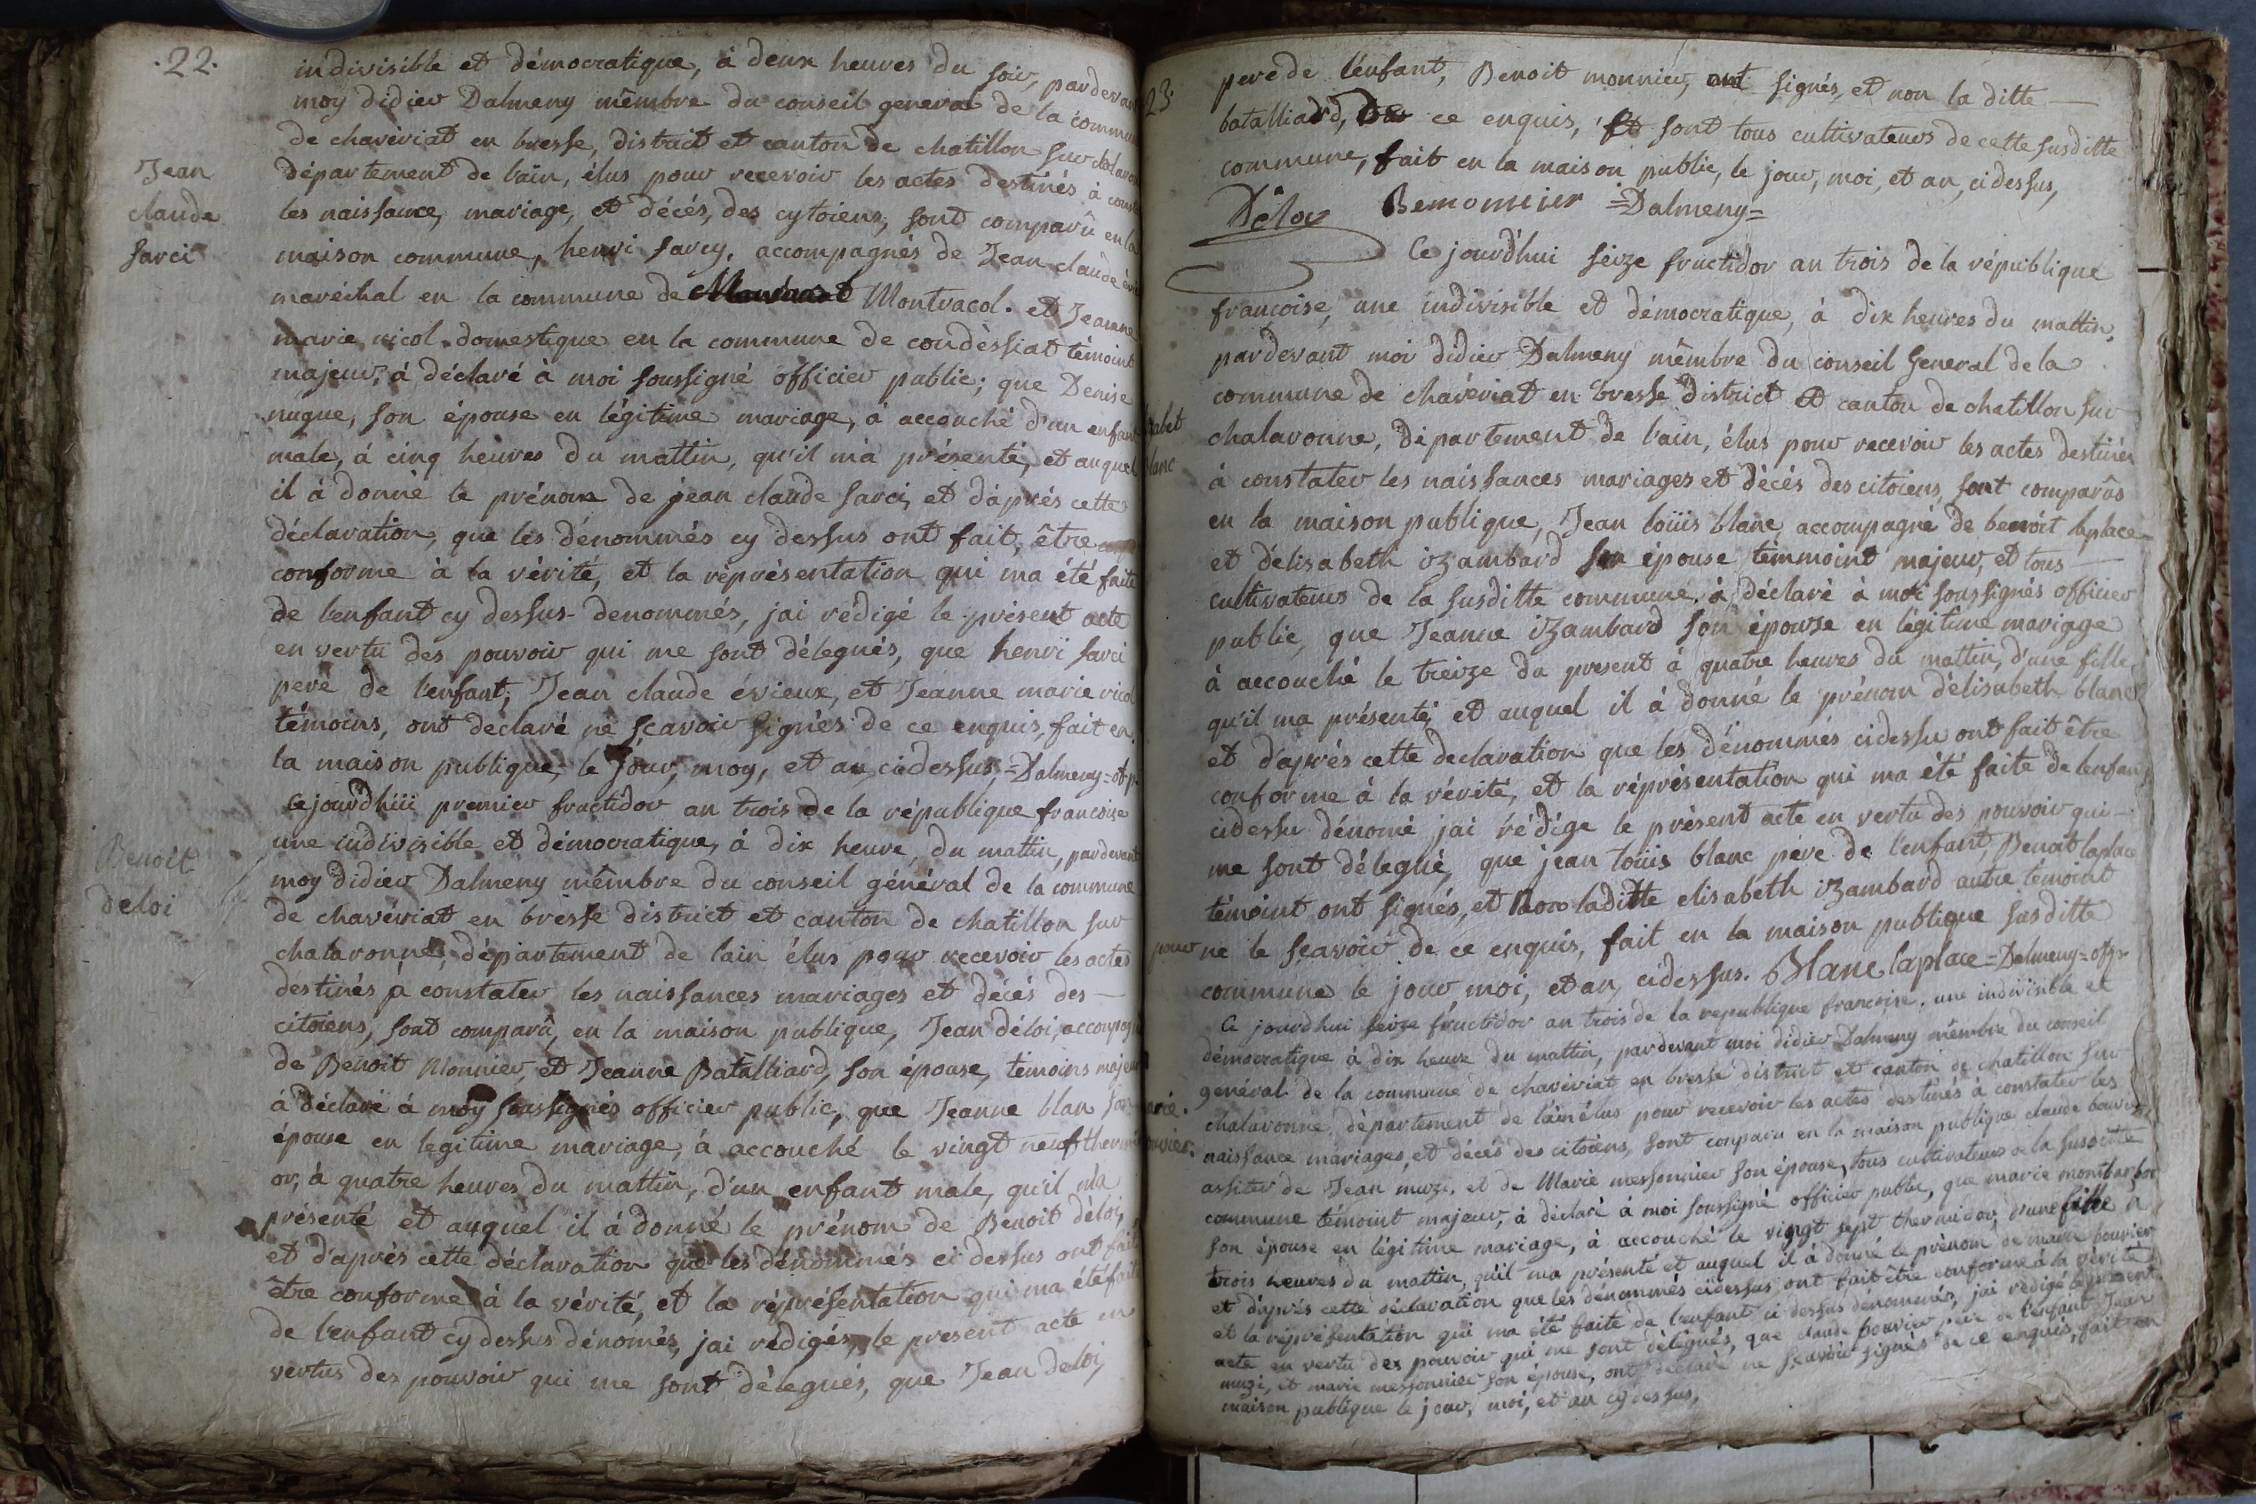 .22.
indivisible et démocratique, à deux heures du soir, pardevant
moy didier Dalmeny mêmbre du conseil general de la commune
de chavèriat en bresse, district et canton de chatillon sur chalaronne
département de lain, élus pour recevoir les actes destinés à
Jean
claude
sarci
les naissance, mariage, et décès, des cytoiens, sont comparû en la
maison commune, henri sarcy, accompagnés de Jean claude
maréchal en la commune de Montracol. et Jeanne
marie ricol domestique en la commune de condèssiat témoint
majeur, à déclaré à moi soussigné officier public; que Denise
nugue, son épouse en légitime mariage, à accouché d'un enfant
male, à cinq heures du mattin, qu'il m'a présenté, et auquel
il à donné le prénom de jean claude sarci, et d'après cette
déclaration, que les dénommés cy dessus ont fait, être
conforme à la vérité, et la réprésentation qui ma été faite
de l'enfant cy dessus denommés, jai rédigé le présent acte
en vertu des pouvoir qui me sont délegués, que henri sarci
pere de l'enfant; Jean claude évieux, et Jeanne marie ricol
témoins, ont déclaré ne sçavoir signés de ce enquis, fait en
la maison publique, le jour, moy, et an, cidessus, =Dalmeny=
Benoit
déloi
Cejourdhüi premier fructidor an trois de la république francoise
une indivisible et démocratique, à dix heure, du mattin, pardevant
moy didier Dalmeny mêmbre du conseil général de la commune
de chavériat en bresse district et canton de chatillon sur
chalaronne, département de lain élus pour recevoir les actes
destinés à constater les naissances mariages et décés des
citoiens, sont comparû, en la maison publique, Jean déloi, accompagné
de Benoit Monnier, et Jeanne Batalliard, son épouse, temoins majeur
à déclaré à moy soussignés officier public, que Jeanne blan son
épouse en legitime mariage, à accouché le vingt neuf thermi
or, à quatre heures du mattin, d'un enfant male, qu'il m'a
présenté et auquel il à donné le prénom de Benoit déloi,
et d'après cette déclaration que les dénommés ci dessus ont fait
être conforme à la vérité, et la réprésentation qui ma été faite
de l'enfant cy dessus dénomés, jai rédigés, le present acte en
vertus des pouvoir qui me sont délegués, que Jean deloi,
23.
pere de l'enfant, Benoit monnier, ont signés, et non la ditte
batalliard, de ce enquis, et sont tous cultivateurs de cette susditte
commune, fait en la maison public, le jour, moi, et an, cidessus,
Déloy Bemomier =Dalmeny=
Ce jourd'hui seize fructidor an trois de la république
francoise, une indivisible et démocratique, à dix heures du mattin,
pardevant moi didier Dalmeny mêmbre du conseil General de la
commune de chavériat en bresse district et canton de chatillon sur
chalaronne, département de lain, élus pour recevoir les actes destinés
à constater les naissances mariages et décés des citoiens, sont comparûs
en la maison publique, Jean loüis blanc accompagné de benoit laplace
et d'élisabeth izambard son épouse témmoint majeur, et tous
cultivateurs de la susditte commune, à déclaré à moi soussignés officier
public, que Jeanne izambard son épouse en légitime mariage
à accouché le treize du present à quatre heures du mattin, d'une fille
qu'il ma présenté, et auquel il à donné le prénom d'élisabeth blanc
et d'après cette declaration que les dénommés cidessu ont fait être
conforme à la vérité, et la réprésentation qui ma été faite de lenfan
cidessu dénomé jai rédige le présent acte en vertu des pouvoir qui
me sont délegué, que jean loüis blanc pere de l'enfant, Benoit laplace
témoint ont signés, et non laditte elisabeth izambard autre témoint
pour ne le sçavoir de ce enquis, fait en la maison publique susditte
commune le jour, moi, et an, cidessus. Blanc laplace =Dalmeny= ofp.
Ce jourdhui seize fructidor an trois de la republique francoise, une indivisible et
démocratique à dix heure du mattin, pardevant moi didier Dalmeny mêmbre du conseil
general de la commune de chavériat en bresse district et canton de chatillon sur
chalaronne, département de lain élus pour recevoir les actes destinés à constater les
naissance mariages, et décés des citoiens, sont comparu en la maison publique claude bouvier
assiter de Jean muzi, et de Marie messonnier son épouse, tous cultivateurs de la susditte
commune témoint majeur, à déclaré à moi soussigné officier public, que marie
son épouse en légitime mariage, à accouché le vingt sept thermidor, d'une fille à
trois heures du mattin, qu'il ma présenté et auquel il à donné le prénom de marie bouvier
et d'après cette déclaration que les dénommés cidessus ont fait être conforme à la vérité
et la réprésentation qui ma été faite de l'enfant ci dessus dénommés, jai rédigé le present
acte en vertu des pouvoir qui me sont délegués, que claude bouvier pere de l'enfant Jean
muzi, et marie messonnier son épouse, ont déclaré ne sçavoir signés de ce enquis, fait en
maison publique le jour, moi, et an cy dessus,